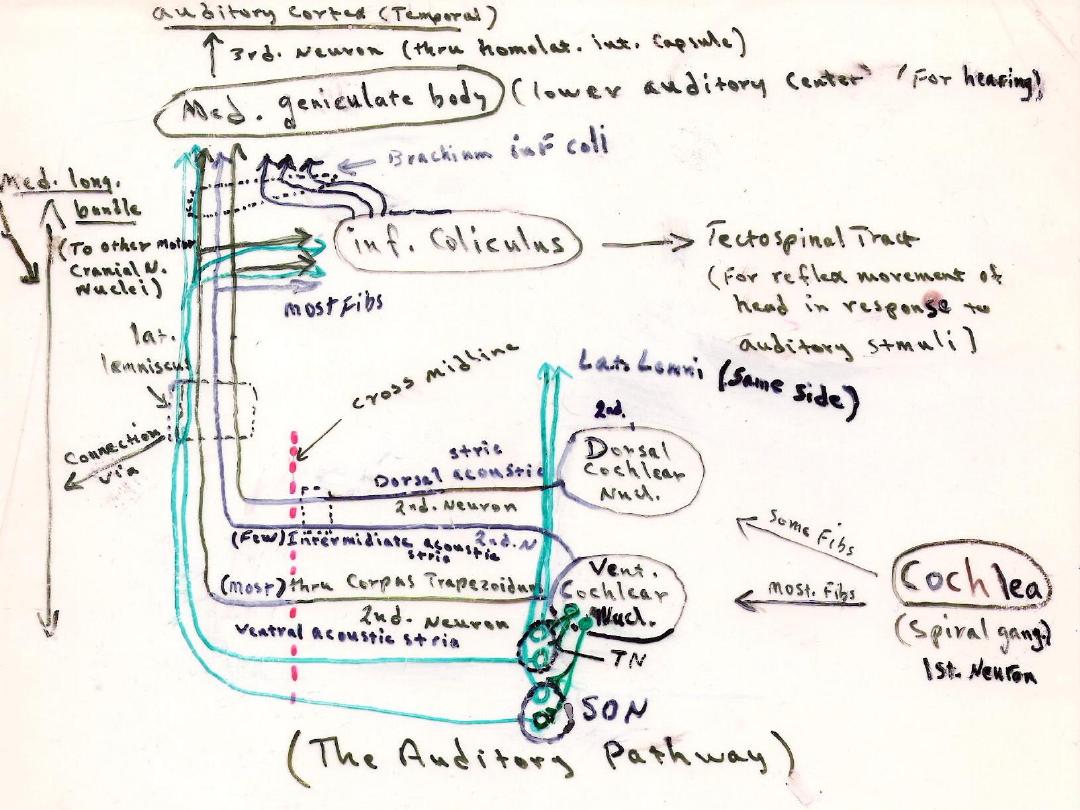 auditory Cortex (Temporal)
3rd. Neuron (thru homolat. int. Capsule)
Med. geniculate body
(lower auditory Center (For hearing)
Brachium inf coli
Med. long.
bundle
(To other motor
Cranial N.
Nuclei)
inf. Coliculus
Tectospinal Tract
(For reflex movement of
head in response to
auditory stmuli)
most Fibs
lat.
lemniscus
Cross midline
Lat. Lemni (Same Side)
Connection
via
2nd.
Dorsal
Cochlear
Nucl.
stria
Dorsal acoustic
2nd. Neuron
(Few) Intermidiate acoustic
stria
2nd. N
Some Fibs
Most. Fibs
Cochlea
(Spiral gang.)
1st. Neuron
Vent.
Cochlear
Nucl.
(most) thru Corpus Trapezoidum
2nd. Neuron
Ventral acoustic stria
TN
SON
(The Auditory Pathway)